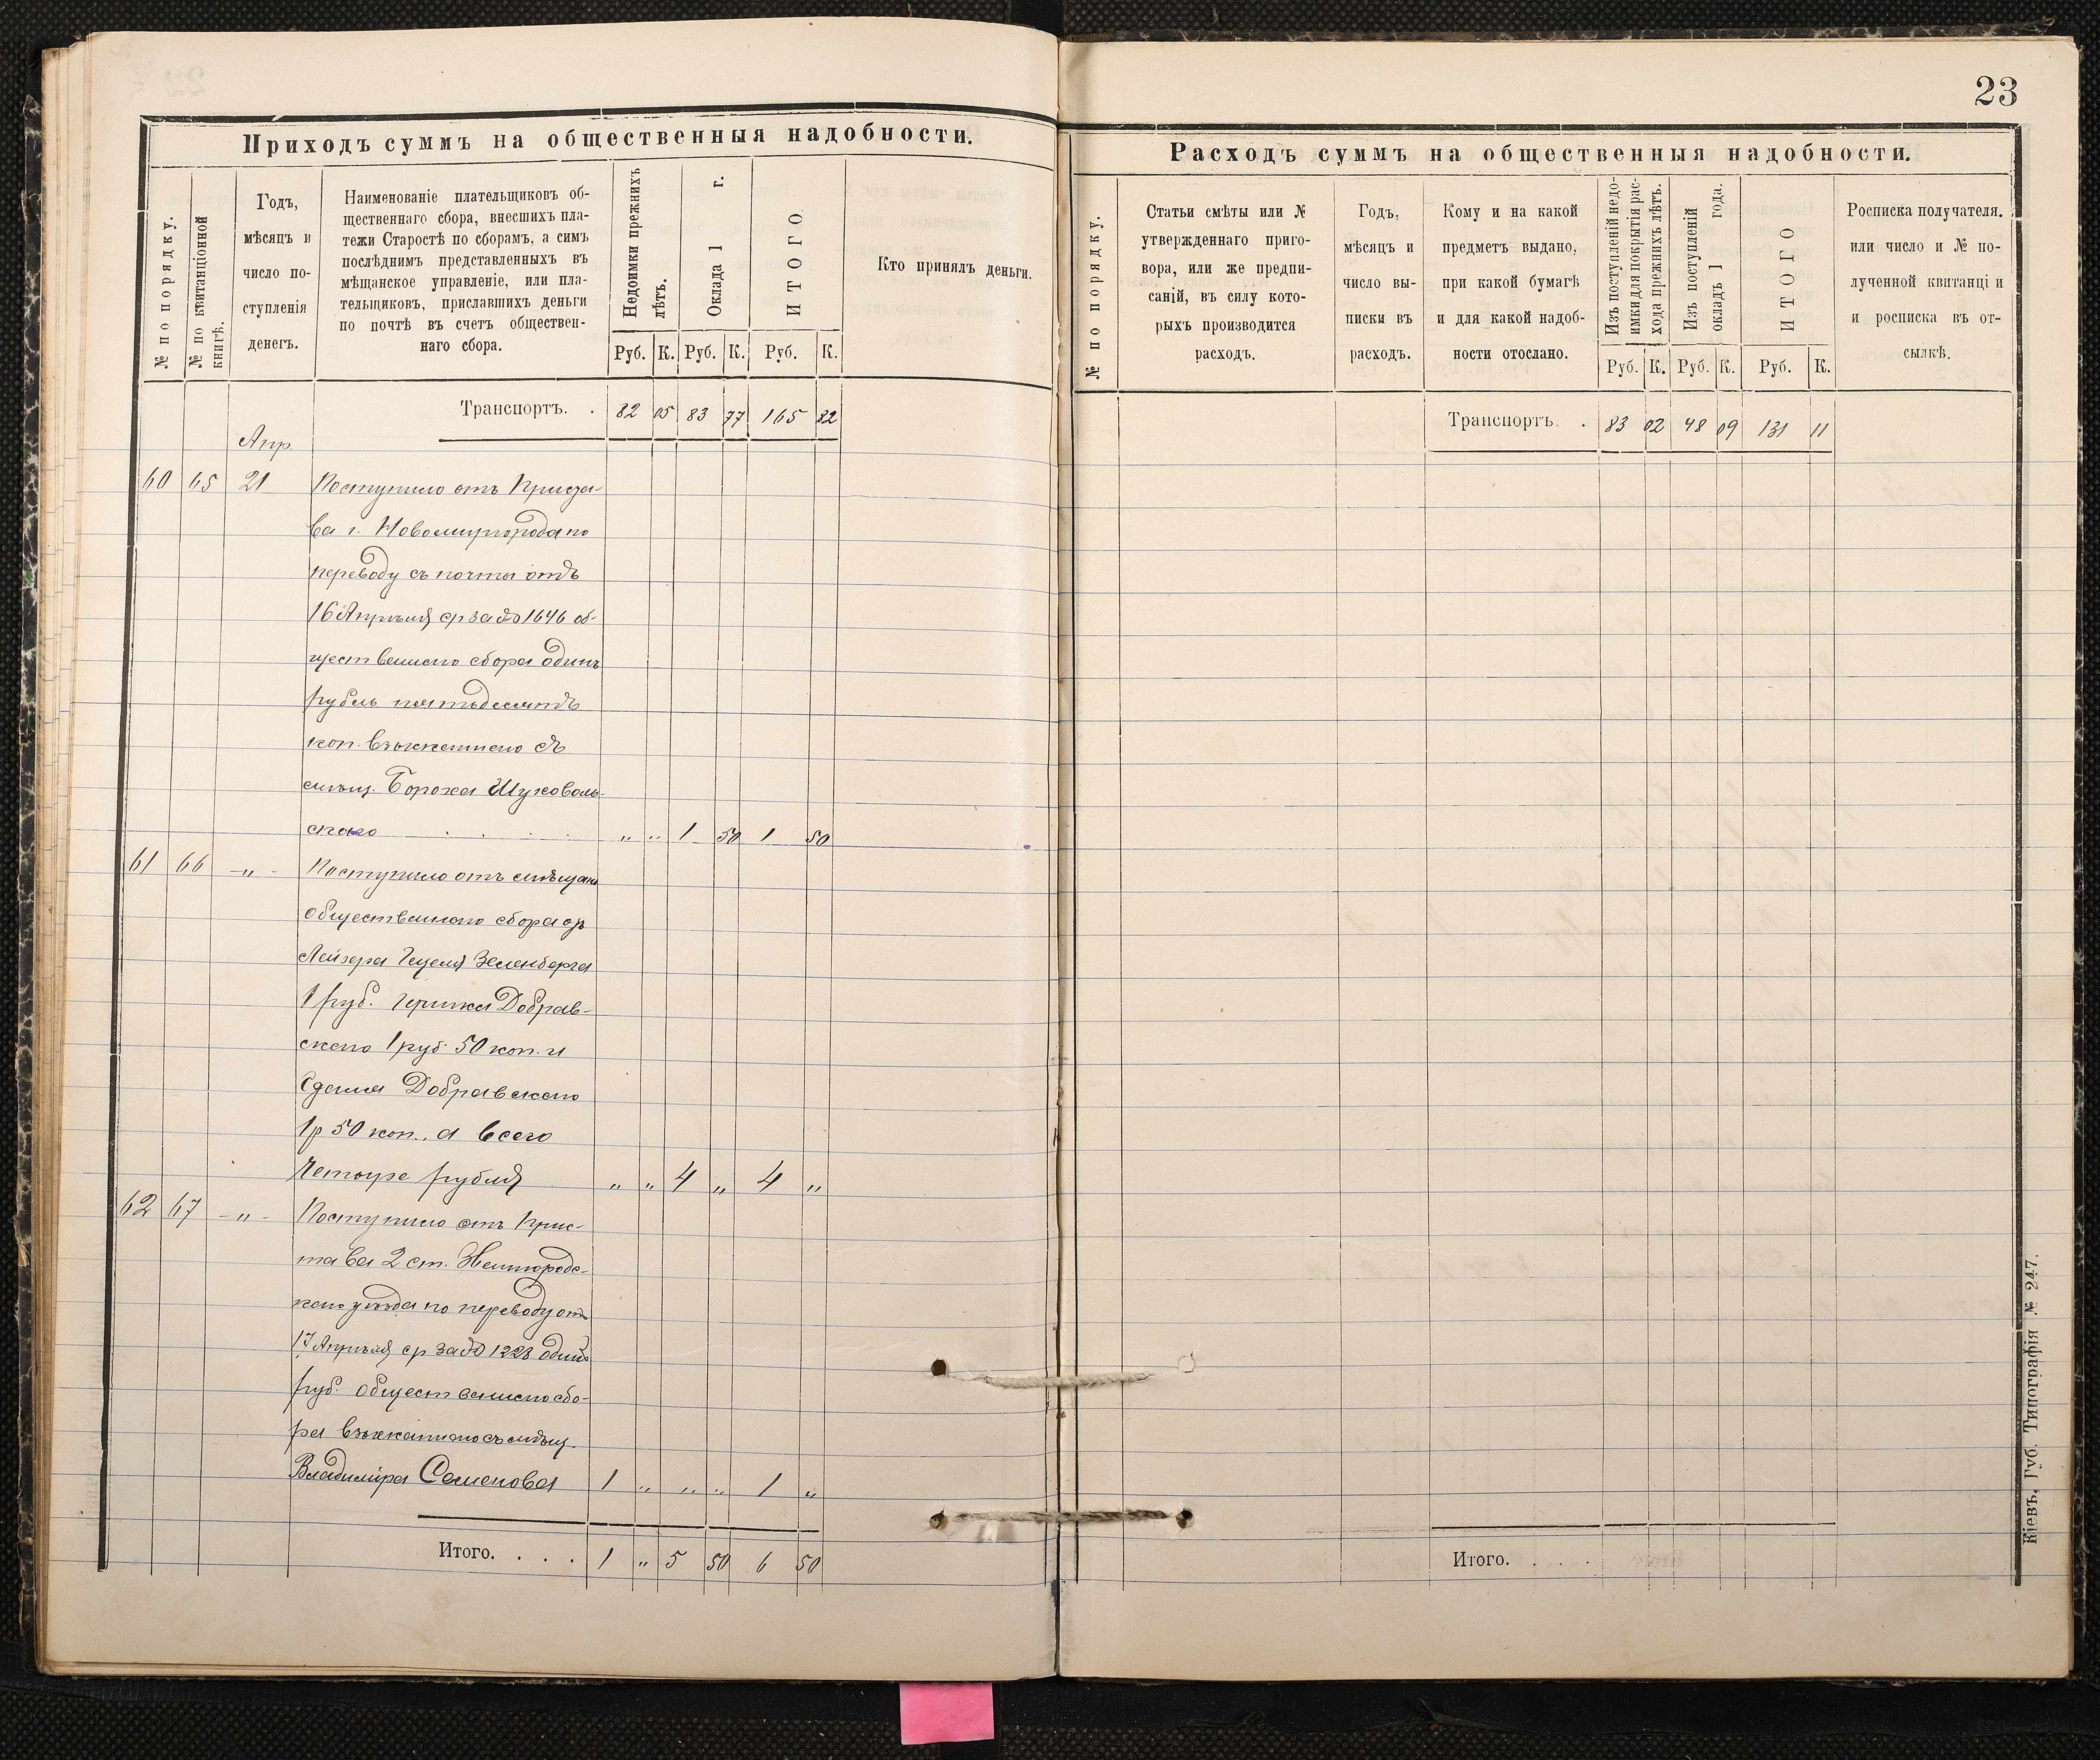 Приходъ суммъ на общественныя надобности.
№ по порядку.
№ по квитанціонной книгѣ.
Годъ,
мѣсяцъ и
число по-
ступленія
денегъ.
Наименованіе плательщиковъ об-
щественнаго сбора, внесшихъ пла-
тежи Старостѣ по сборамъ, а симъ
послѣднимъ представленныхъ въ
мѣщанское управленіе, или пла-
тельщиковъ, приславшихъ деньги
по почтѣ въ счетъ обществен-
наго сбора.
Недоимки прежнихъ лѣтъ.
Оклада 1 г.
ИТОГО.
Кто принялъ деньги.
Руб. К. Руб. К. Руб. К.
Транспортъ. . 82 05 83 77 165 82
Апр.
60 65 21 Поступило отъ Приста-
ва г. Новомиргорода по
переводу съ почты отъ
16 Апрѣля ср за № 1646 об-
щественнаго сбора одинъ
рубль пятьдесятъ
коп. взысканнаго съ
мѣщ. Бороха Шуховоль-
скаго . . . . „ „ 1 50 1 50
61 66 -„- Поступило отъ мѣщанъ
общественнаго сбора съ
Лейзера Гецеля Зеленберга
1 руб. Гершка Добрав-
скаго 1 руб. 50 коп. и
Добравскаго
1 р 50 коп., а всего
Четыре рубля „ „ 4 „ 4 „
62 67 -„- Поступило отъ Прис-
тава 2 ст. Звенигородс-
каго уѣзда по переводу отъ
17 Апрѣля ср за № 1228 одинъ
руб. общественнаго сбо-
ра взысканнаго съ мѣщ.
Владиміра Семенова 1 „ „ „ 1 „
Итого. . . . 1 „ 5 50 6 50
23
Расходъ суммъ на общественныя надобности.
№ по порядку.
Статьи смѣты или №
утвержденнаго приго-
вора, или же предпи-
саній, въ силу кото-
рыхъ производится
расходъ.
Годъ,
мѣсяцъ и
число вы-
писки въ
расходъ.
Кому и на какой
предметъ выдано,
при какой бумагѣ
и для какой надоб-
ности отослано.
Изъ поступленій недо-
имки для покрытія рас-
хода прежнихъ лѣтъ.
Изъ поступленій
окладъ 1 года.
ИТОГО
Росписка получателя.
или число и № по-
лученной квитанціи
и росписка въ от-
сылкѣ.
Руб. К. Руб. К. Руб. К.
Транспортъ. . 83 02 48 09 131 11
Итого. . . .
Кіевъ, Губ. Типографія № 247.